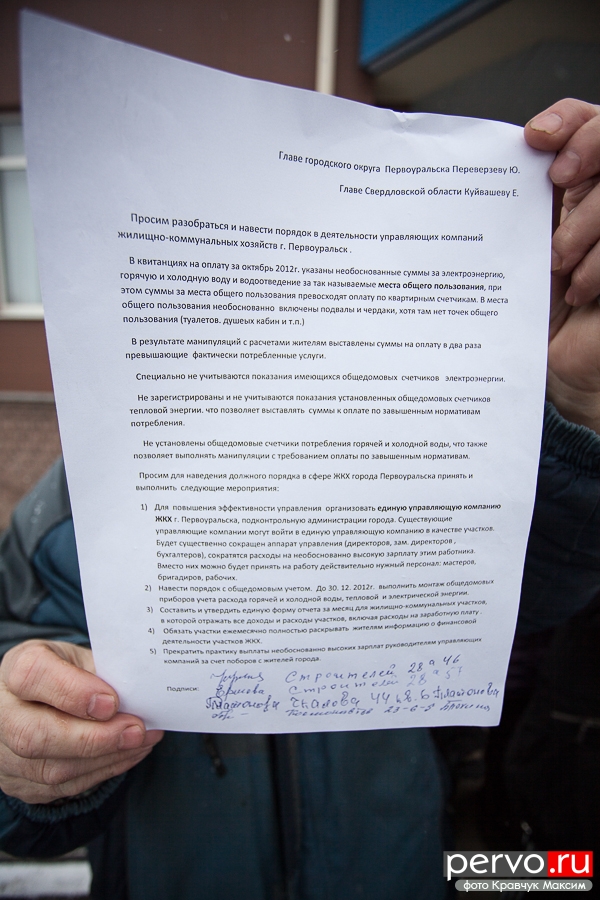 Главе городского округа Первоуральска Переверзеву Ю.
Главе Свердловской области Куйвашеву Е.
Просим разобраться и навести порядок в деятельности управляющих компаний
жилищно-коммунальных хозяйств г. Первоуральск .
В квитанциях на оплату за октябрь 2012г. указаны необоснованные суммы за электроэнергию,
горячую и холодную воду и водоотведение за так называемые места общего пользования, при
этом суммы за места общего пользования превосходят оплату по квартирным счетчикам. В места
общего пользования необоснованно включены подвалы и чердаки, хотя там нет точек общего
пользования (туалетов. душеых кабин и т.п.)
В результате манипуляций с расчетами жителям выставлены суммы на оплату в два раза
превышающие фактически потребленные услуги.
Специально не учитываются показания имеющихся общедомовых счетчиков электроэнергии.
Не зарегистрированы и не учитываются показания установленных общедомовых счетчиков
тепловой энергии. что позволяет выставлять суммы к оплате по завышенным нормативам
потребления.
Не установлены общедомовые счетчики потребления горячей и холодной воды, что также
позволяет выполнять манипуляции с требованием оплаты по завышенным нормативам.
Просим для наведения должного порядка в сфере ЖКХ города Первоуральска принять и
выполнить следующие мероприятия:
1) Для повышения эффективности управления организовать единую управляющую компанию
ЖКХ г. Первоуральска, подконтрольную администрации города. Существующие
управляющие компании могут войти в единую управляющую компанию в качестве участков.
Будет существенно сокращен аппарат управления (директоров, зам. директоров ,
бухгалтеров), сократятся расходы на необоснованно высокую зарплату этим работника.
Вместо них можно будет принять на работу действительно нужный персонал: мастеров,
бригадиров, рабочих.
2) Навести порядок с общедомовым учетом. До 30. 12. 2012г. выполнить монтаж общедомовых
приборов учета расхода горячей и холодной воды, тепловой и электрической энергии.
3) Составить и утвердить единую форму отчета за месяц для жилищно-коммунальных участков,
в которой отражать все доходы и расходы участков, включая расходы на заработную плату .
4) Обязать участки ежемесячно полностью раскрывать жителям информацию о финансовой
деятельности участков ЖКХ.
5) Прекратить практику выплаты необоснованно высоких зарплат руководителям управляющих
компаний за счет поборов с жителей города.
Строителей 28а 46
Подписи: Строителей 28а 57
Платонова Чкалова 44 кв. 6 Платонова
23-6-
pervo.ru
фото Кравчук Максим